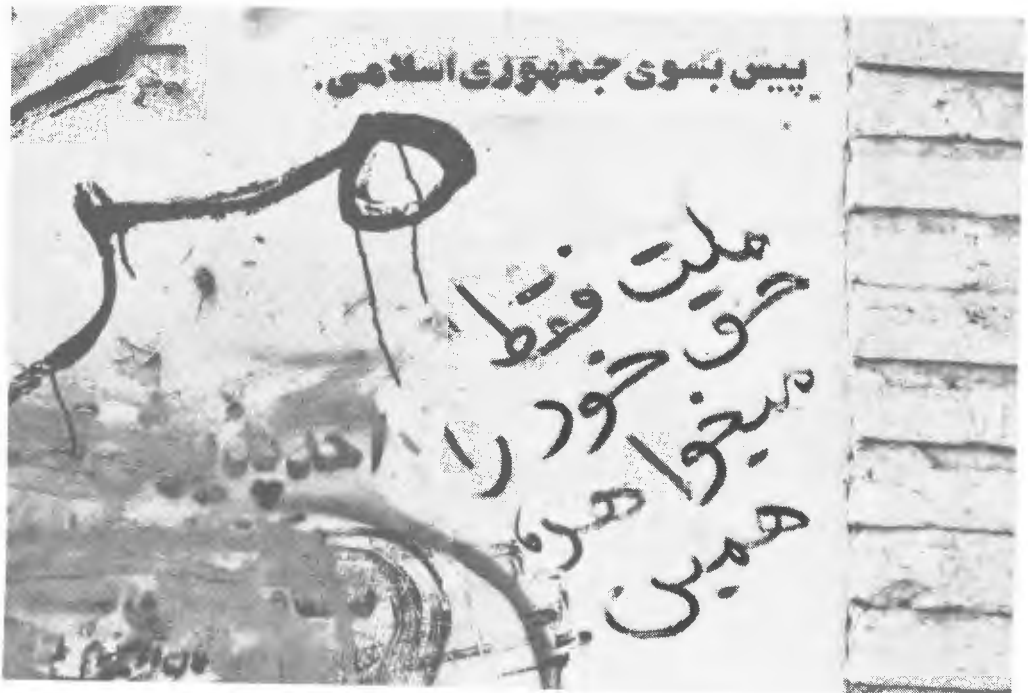 پیس بسوی جمهوری اسلامی.
ملت فقط
حق خود را
میخواهد
همین